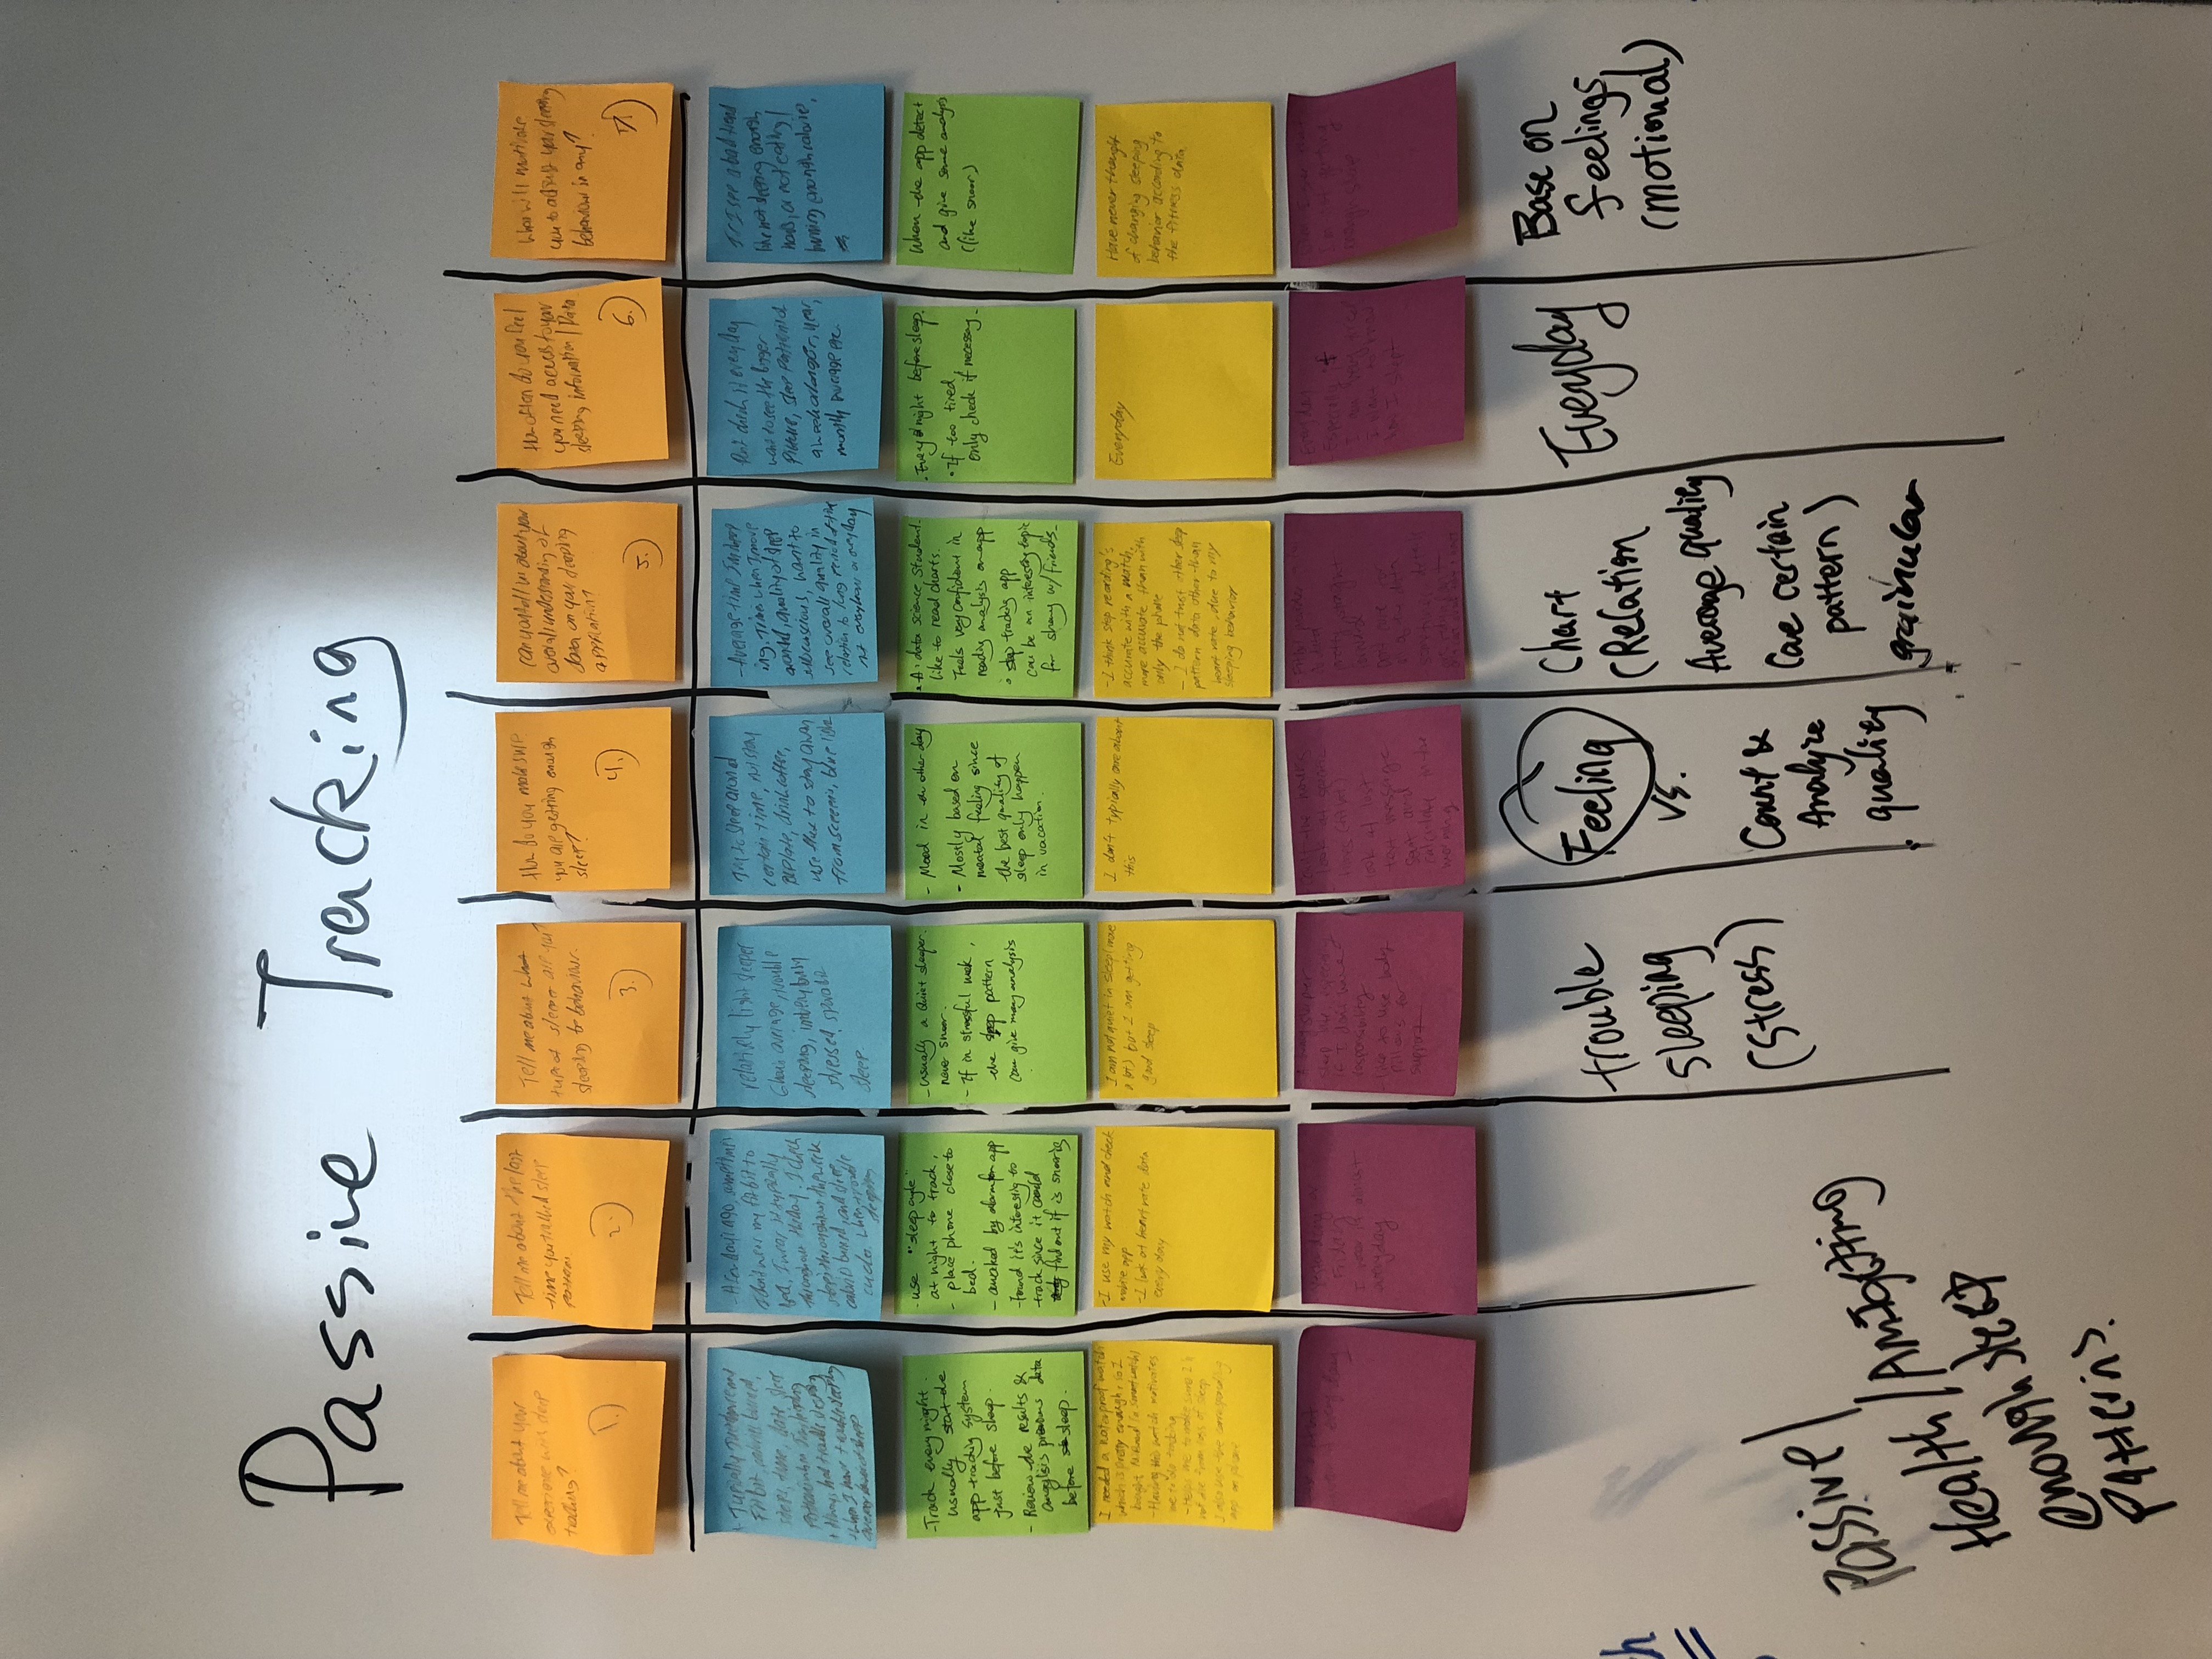 Passive Tracking
Tell me about your
experience with sleep
tracking?
1.)
Tell me about the last
time you tracked sleep
pattern.
2.)
Tell me about what
type of sleeper are you?
sleeping behaviour.
3.)
How do you make sure
you are getting enough
sleep?
4.)
Can you tell us about your
overall understanding of
data on your sleeping
application?
5.)
How often do you feel
you need access to your
sleeping information / Data
6.)
What will motivate
you to adjust your sleeping
behaviour in any?
7.)
Fitbit, calories burned,
steps, time,
pattern when I'm
Always had trouble sleeping
when I have trouble sleeping
- A few days ago, sometimes
I don't wear my fitbit to
bed, I wear it typically
throughout the day. I check
steps throughout the week
calories burned, and sleep
cycles. When trouble
sleeping
relatively light sleeper
average, trouble
sleeping,
stressed,
sleep.
Try to sleep around
certain time, not stay
up late, drink coffee,
use flux to stay away
from screens, blue light
- Average time I'm sleep
ing. Time when I move
around, quality of sleep
subconscious, want to
see overall quality in
relation to long period of time
not every hour or every day
Don't check it every day
want to see the bigger
picture, sleep pattern of
a week or longer, year,
monthly average etc.
If I see a bad trend
like not sleeping enough
hours, or not eating /
burning enough calories.
- Track every night.
usually start the
app tracking system
just before sleep.
- Review the results &
analysis previous data
before sleep.
- use "sleep cycle"
at night to track,
- place phone close to
bed.
- awaked by alarm for app
- Found it's interesting to
track since it could
find out if is snoring
- usually a Quiet sleeper.
never snoor.
- If in stressful week,
the sleep pattern
can give many analysis
- Mood in the other day
- Mostly based on
mental feeling since
the best quality of
sleep only happen
in vacation.
• A data science student.
like to read charts.
Feels very confident in
reading analysis on app
• sleep tracking app
can be an interesting topic
for sharing w/ friends.
• Every night before sleep.
• If too tired,
only check if necessary.
When the app detect
and give some analysis
(like snoor)
I needed a waterproof watch
which is pretty enough, so I
bought
- Having this watch motivates
me to do tracking
- Helps me to make sure I'm
not die from loss of sleep
I also use the corresponding
app on phone
- I use my watch and check
mobile app
- I look at heart rate data
every day
I am not quiet in sleep (move
a lot) but I am getting
good sleep
I don't typically care about
this
- I think step recording's
accurate with a watch,
more accurate than with
only the phone
- I do not trust other sleep
pattern data other than
heart rate, due to my
sleeping behavior
Everyday
Have never thought
of changing sleeping
behavior according to
the fitness data.
everyday
Yesterday or
Friday
I wear it almost
everyday
sleeper
sleep late, especially
if I don't have
responsibility
- like to use body
pillows for
support
Count the hours
look at
hours (fitbit)
look at last
text message
sent and
calculate in the
morning
Fitbit
data
pretty straight
forward
of the data
sometimes details
Everyday
Especially if
I am very tired
I want to know
how I slept
When I see that
I'm not getting
enough sleep
trouble
sleeping
(stress)
Feeling
vs.
Count &
Analyze
quality
Chart
(Relation
Average quality
Care certain
pattern)
grainular
Everyday
Base on
feelings
(motional)
Passive /
Health /
enough sleep
Patterns.